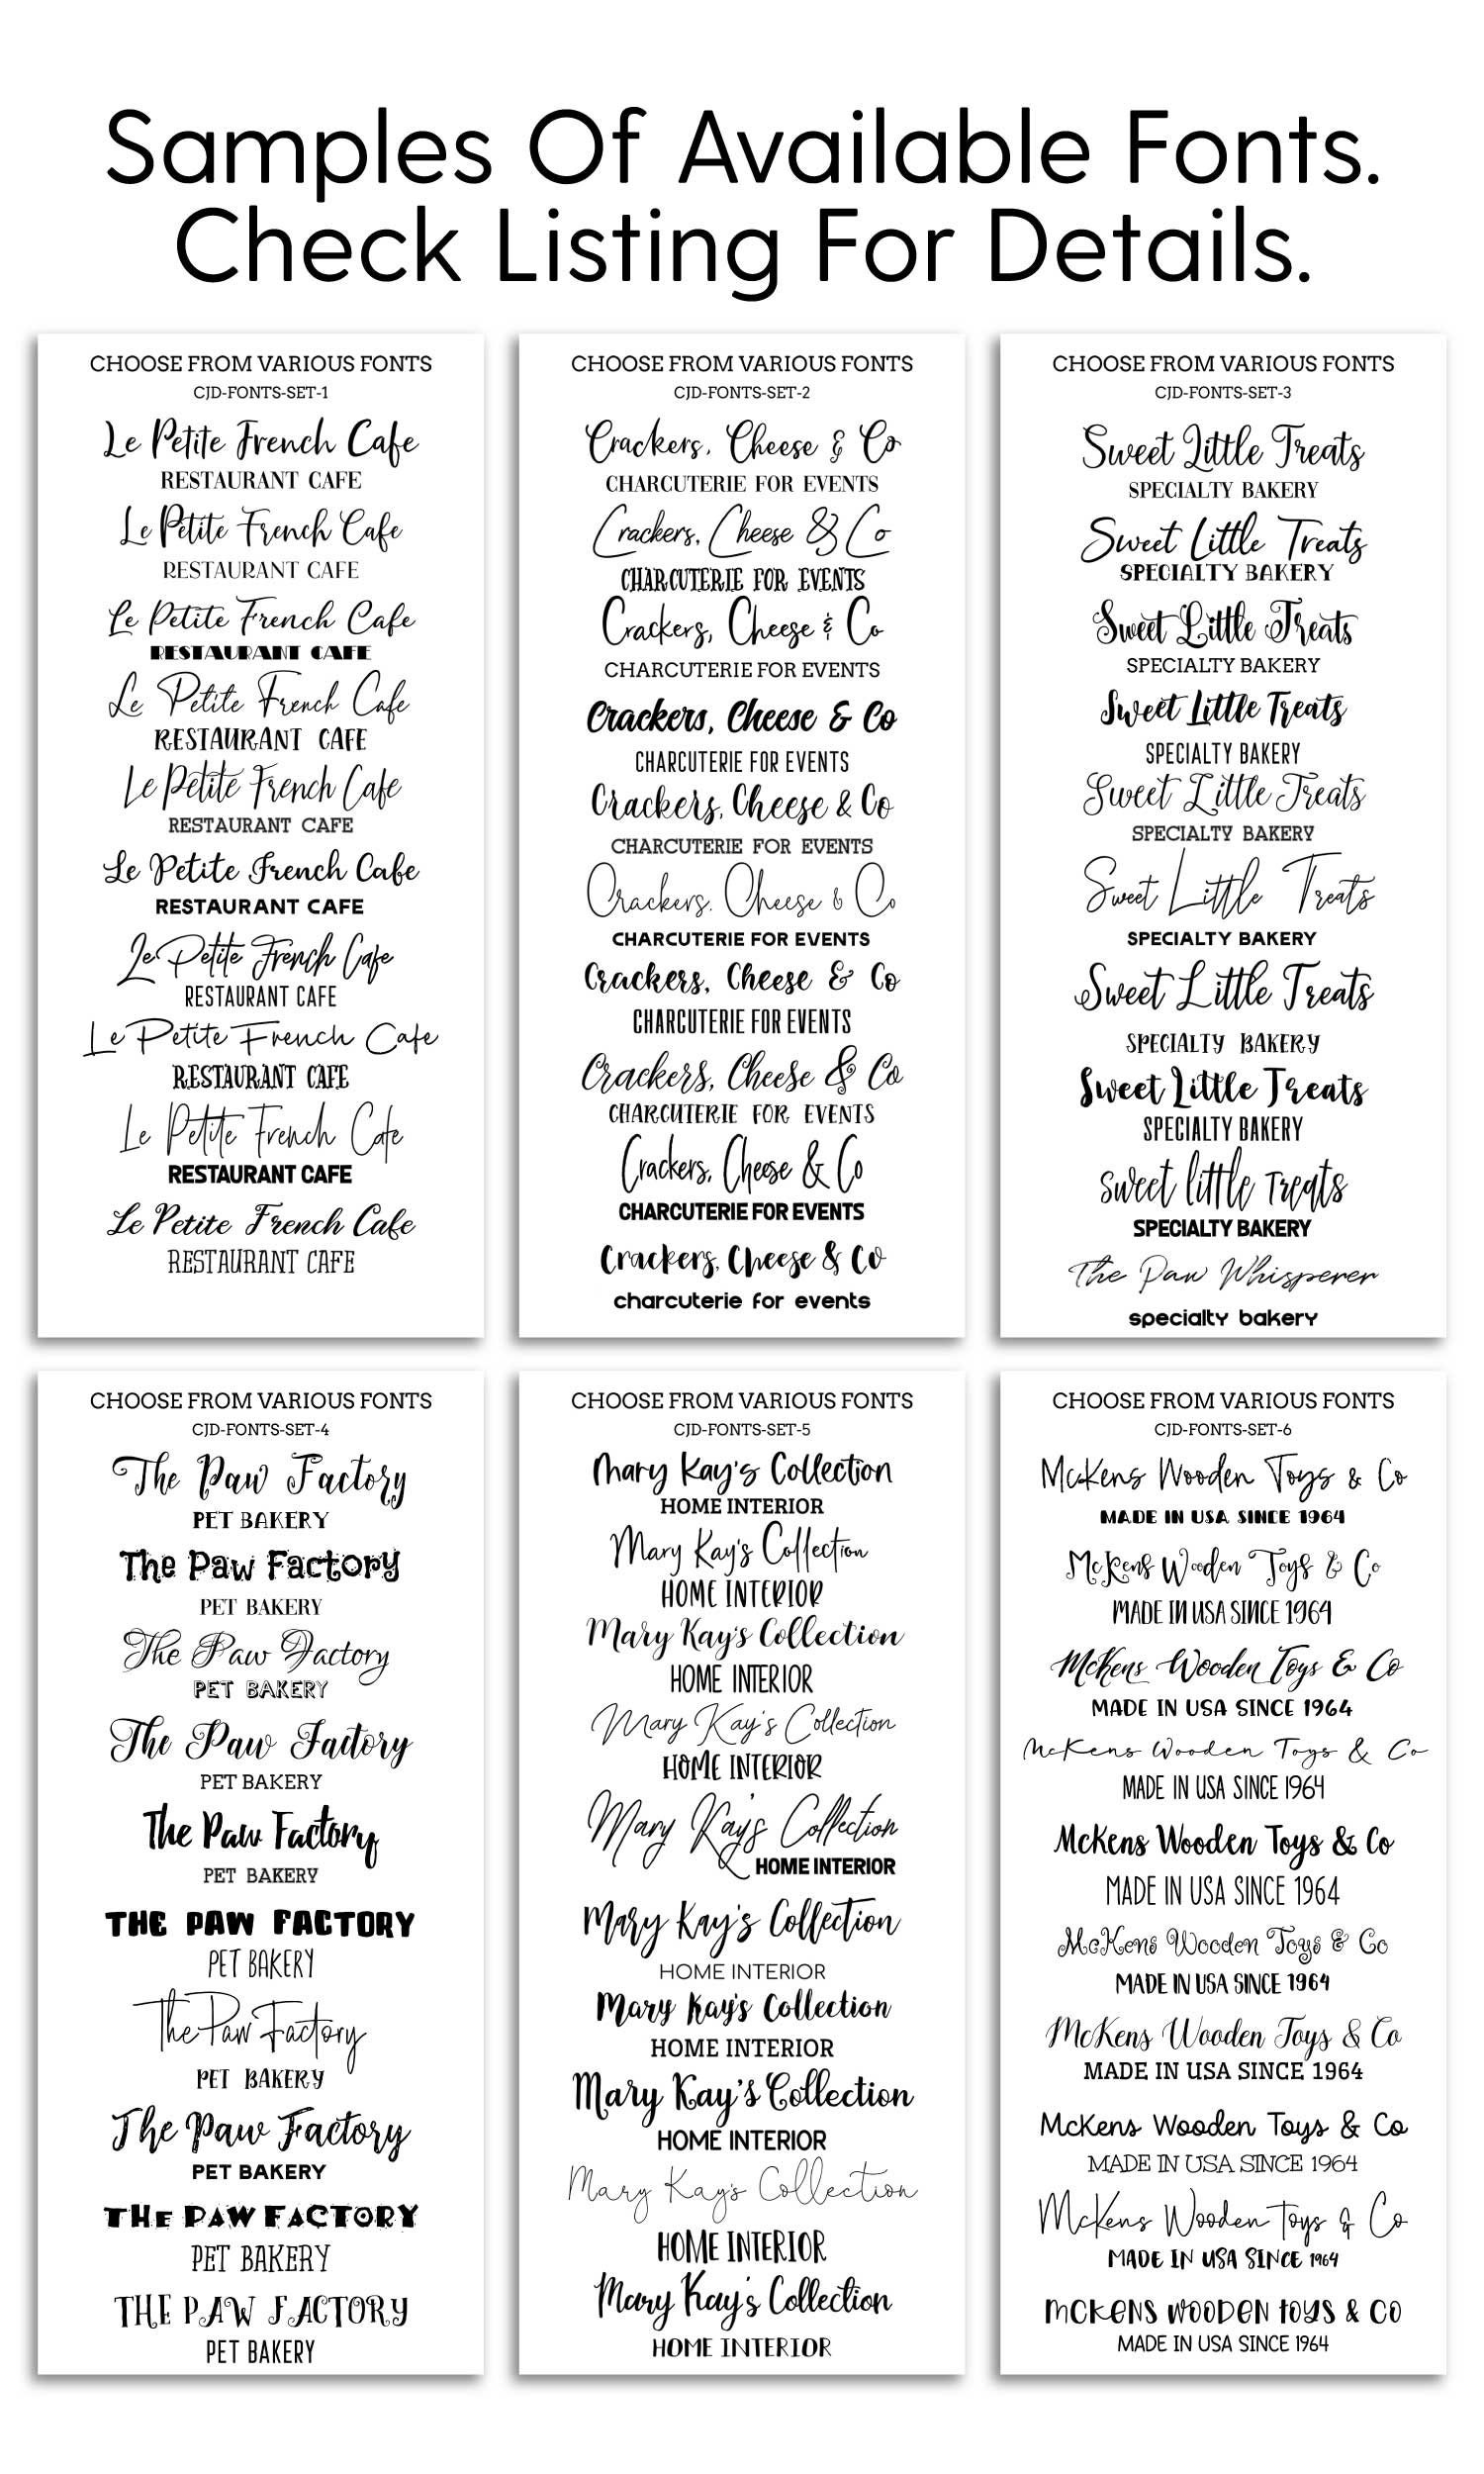 Samples Of Available Fonts.
Check Listing For Details.
CHOOSE FROM VARIOUS FONTS
CJD-FONTS-SET-1
Le Petite French Cafe
RESTAURANT CAFE
Le Petite French Cafe
RESTAURANT CAFE
Le Petite French Cafe
RESTAURANT CAFE
Le Petite French Cafe
RESTAURANT CAFE
Le Petite French Cafe
RESTAURANT CAFE
Le Petite French Cafe
RESTAURANT CAFE
Le Petite French Cafe
RESTAURANT CAFE
Le Petite French Cafe
RESTAURANT CAFE
Le Petite French Cafe
RESTAURANT CAFE
Le Petite French Cafe
RESTAURANT CAFE
CHOOSE FROM VARIOUS FONTS
CJD-FONTS-SET-2
Crackers, Cheese & Co
CHARCUTERIE FOR EVENTS
Crackers, Cheese & Co
CHARCUTERIE FOR EVENTS
Crackers, Cheese & Co
CHARCUTERIE FOR EVENTS
Crackers, Cheese & Co
CHARCUTERIE FOR EVENTS
Crackers, Cheese & Co
CHARCUTERIE FOR EVENTS
Crackers, Cheese & Co
CHARCUTERIE FOR EVENTS
Crackers, Cheese & Co
CHARCUTERIE FOR EVENTS
Crackers, Cheese & Co
CHARCUTERIE FOR EVENTS
Crackers, Cheese & Co
CHARCUTERIE FOR EVENTS
Crackers, Cheese & Co
charcuterie for events
CHOOSE FROM VARIOUS FONTS
CJD-FONTS-SET-3
Sweet Little Treats
SPECIALTY BAKERY
Sweet Little Treats
SPECIALTY BAKERY
Sweet Little Treats
SPECIALTY BAKERY
Sweet Little Treats
SPECIALTY BAKERY
Sweet Little Treats
SPECIALTY BAKERY
Sweet Little Treats
SPECIALTY BAKERY
Sweet Little Treats
SPECIALTY BAKERY
Sweet Little Treats
SPECIALTY BAKERY
sweet little treats
SPECIALTY BAKERY
The Paw Whisperer
specialty bakery
CHOOSE FROM VARIOUS FONTS
CJD-FONTS-SET-4
The Paw Factory
PET BAKERY
The Paw Factory
PET BAKERY
The Paw Factory
PET BAKERY
The Paw Factory
PET BAKERY
The Paw Factory
PET BAKERY
THE PAW FACTORY
PET BAKERY
The Paw Factory
PET BAKERY
The Paw Factory
PET BAKERY
THE PAW FACTORY
PET BAKERY
THE PAW FACTORY
PET BAKERY
CHOOSE FROM VARIOUS FONTS
CJD-FONTS-SET-5
Mary Kay's Collection
HOME INTERIOR
Mary Kay's Collection
HOME INTERIOR
Mary Kay's Collection
HOME INTERIOR
Mary Kay's Collection
HOME INTERIOR
Mary Kay's Collection
HOME INTERIOR
Mary Kay's Collection
HOME INTERIOR
Mary Kay's Collection
HOME INTERIOR
Mary Kay's Collection
HOME INTERIOR
Mary Kay's Collection
HOME INTERIOR
Mary Kay's Collection
HOME INTERIOR
CHOOSE FROM VARIOUS FONTS
CJD-FONTS-SET-6
McKens Wooden Toys & Co
MADE IN USA SINCE 1964
McKens Wooden Toys & Co
MADE IN USA SINCE 1964
McKens Wooden Toys & Co
MADE IN USA SINCE 1964
McKens Wooden Toys & Co
MADE IN USA SINCE 1964
McKens Wooden Toys & Co
MADE IN USA SINCE 1964
McKens Wooden Toys & Co
MADE IN USA SINCE 1964
McKens Wooden Toys & Co
MADE IN USA SINCE 1964
McKens Wooden Toys & Co
MADE IN USA SINCE 1964
McKens Wooden Toys & Co
MADE IN USA SINCE 1964
McKENS WOODEN tOYS & CO
MADE IN USA SINCE 1964